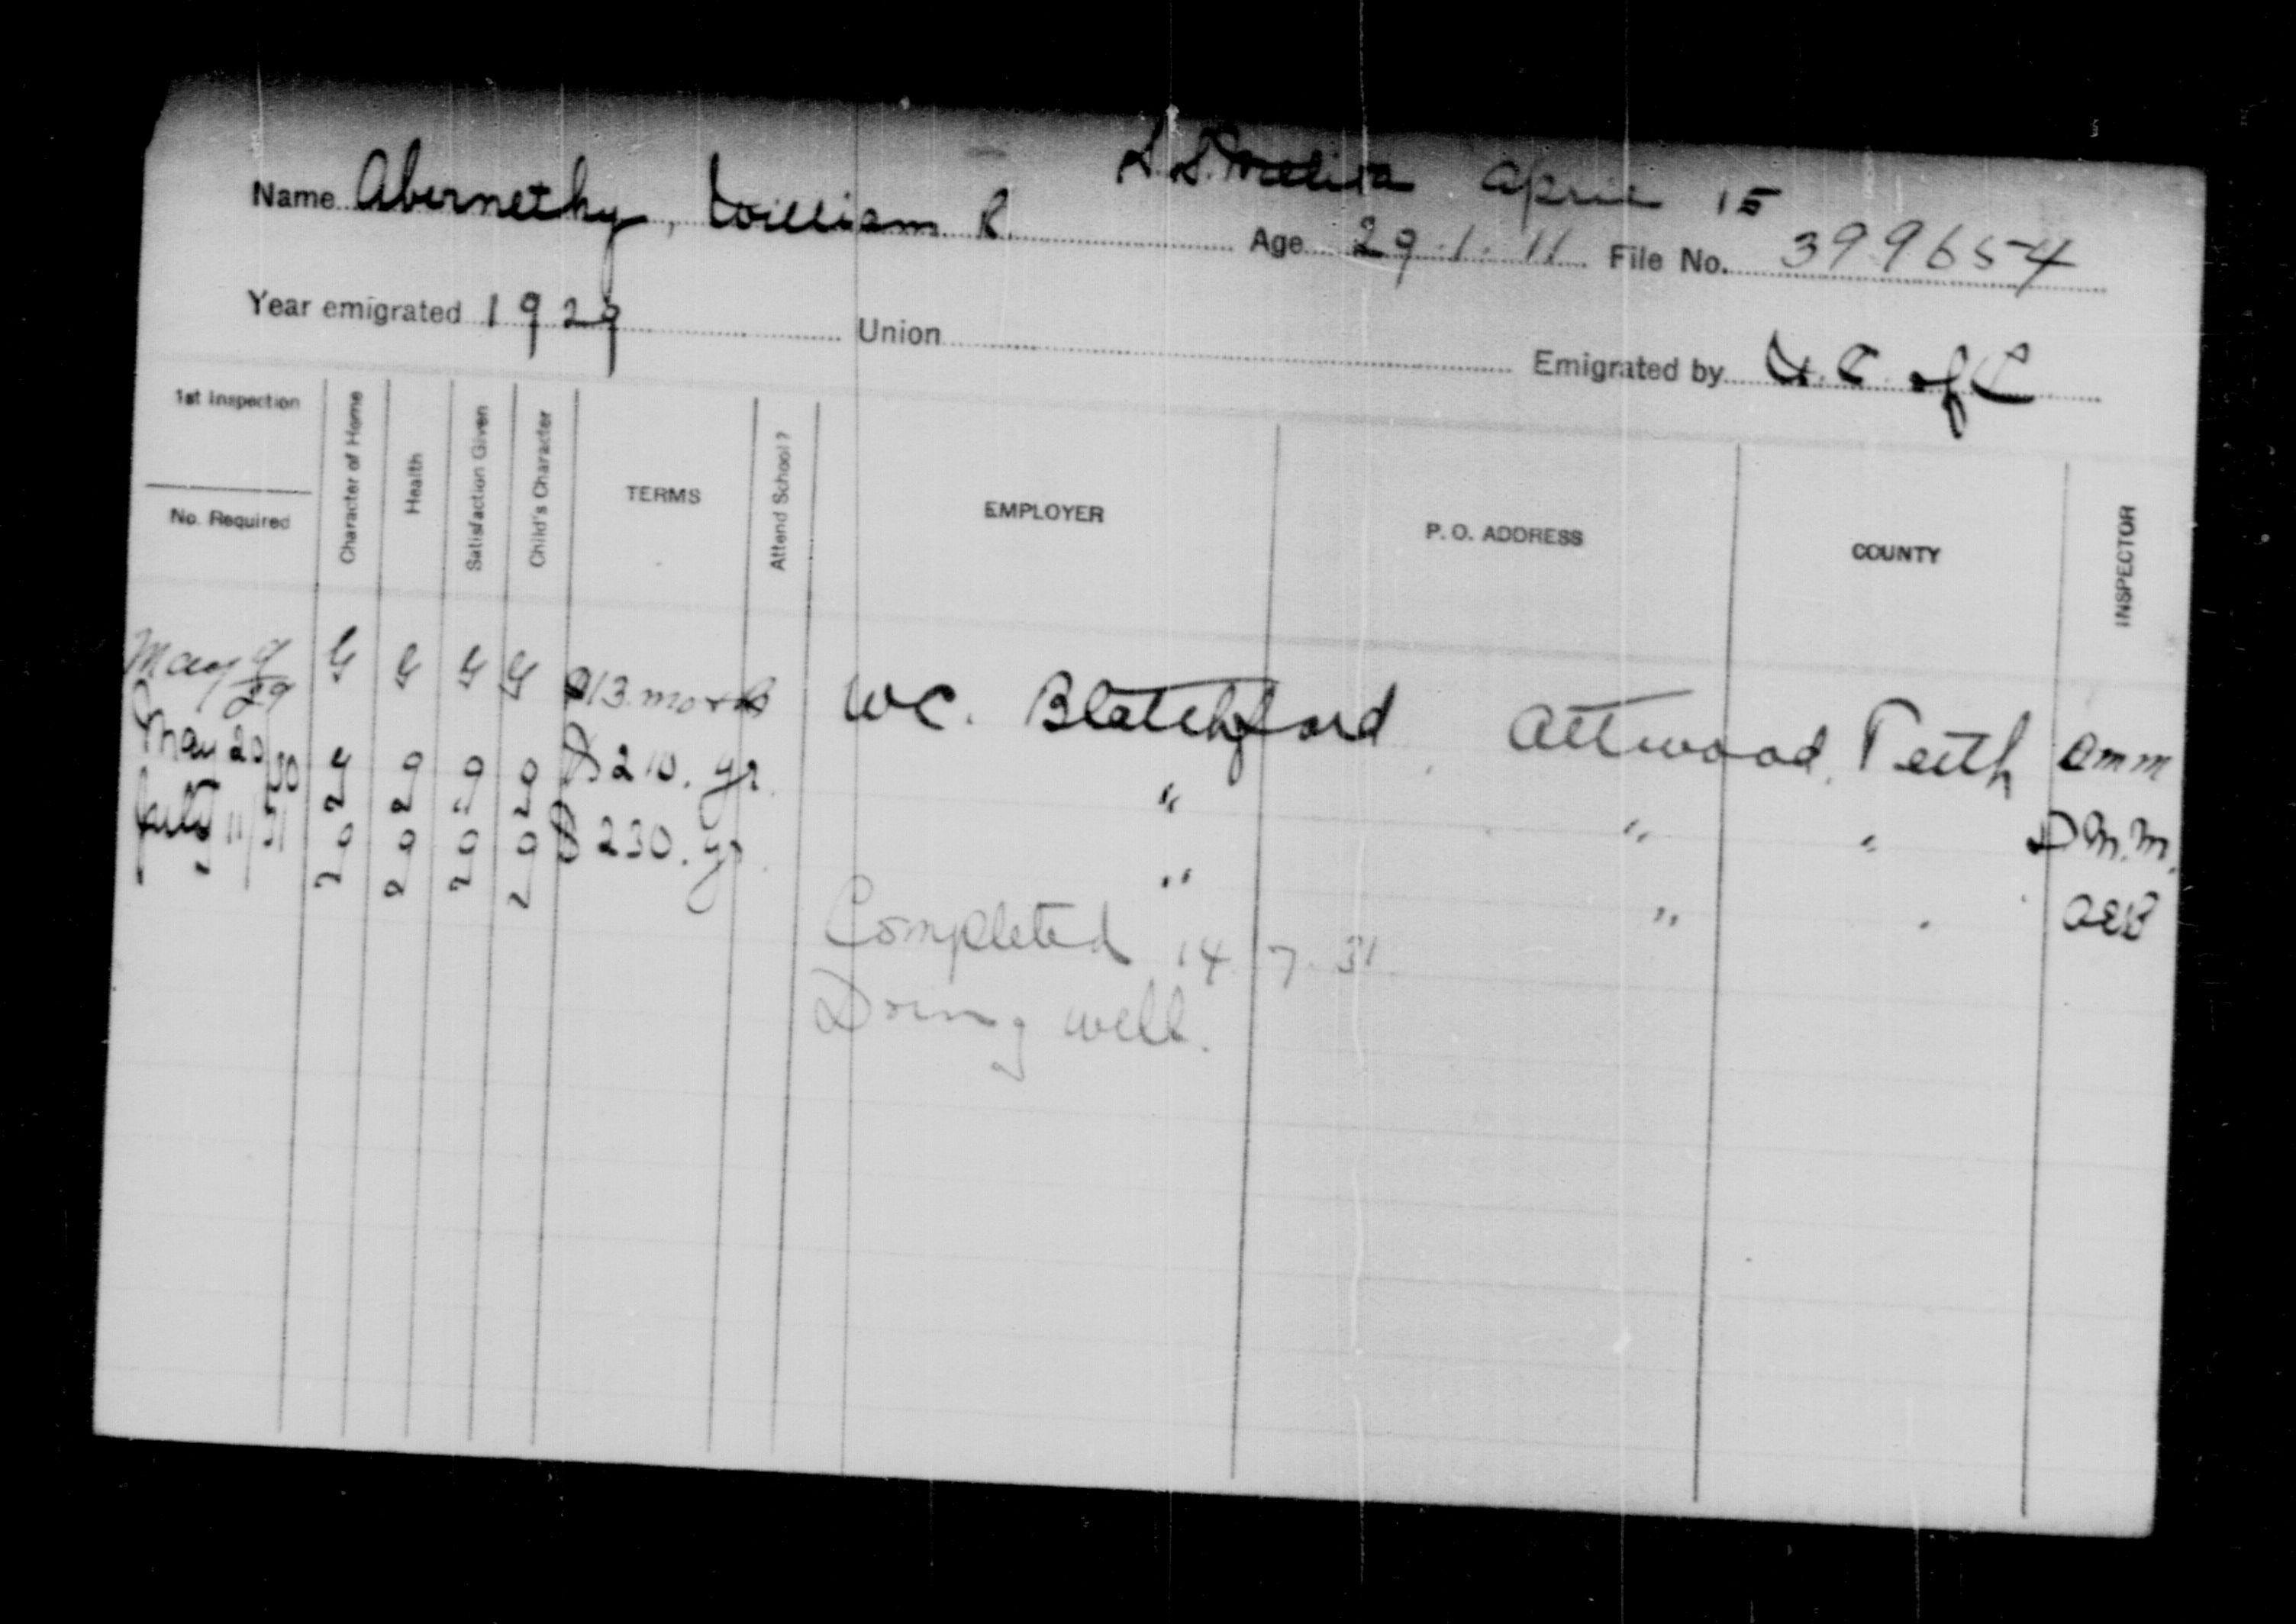 S.S. Melita April 15
Name Abernethy, William R. Age 29.1.11 File No. 399654
Year emigrated 1929 Union Emigrated by U.C. of C
1st Inspection
No. Required
Character of Home
Health
Satisfaction Given
Child's Character
TERMS
Attend School?
EMPLOYER
P. O. ADDRESS
COUNTY
INSPECTOR
May 9/29 G G G G 13. month W C. Blatchford Attwood, Perth
May 20/30 g g g g $210. yr. " " " D M.M.
July 11/31 g g g g $230. yr. " " " OEB
Completed 14.7.31
Doing well.